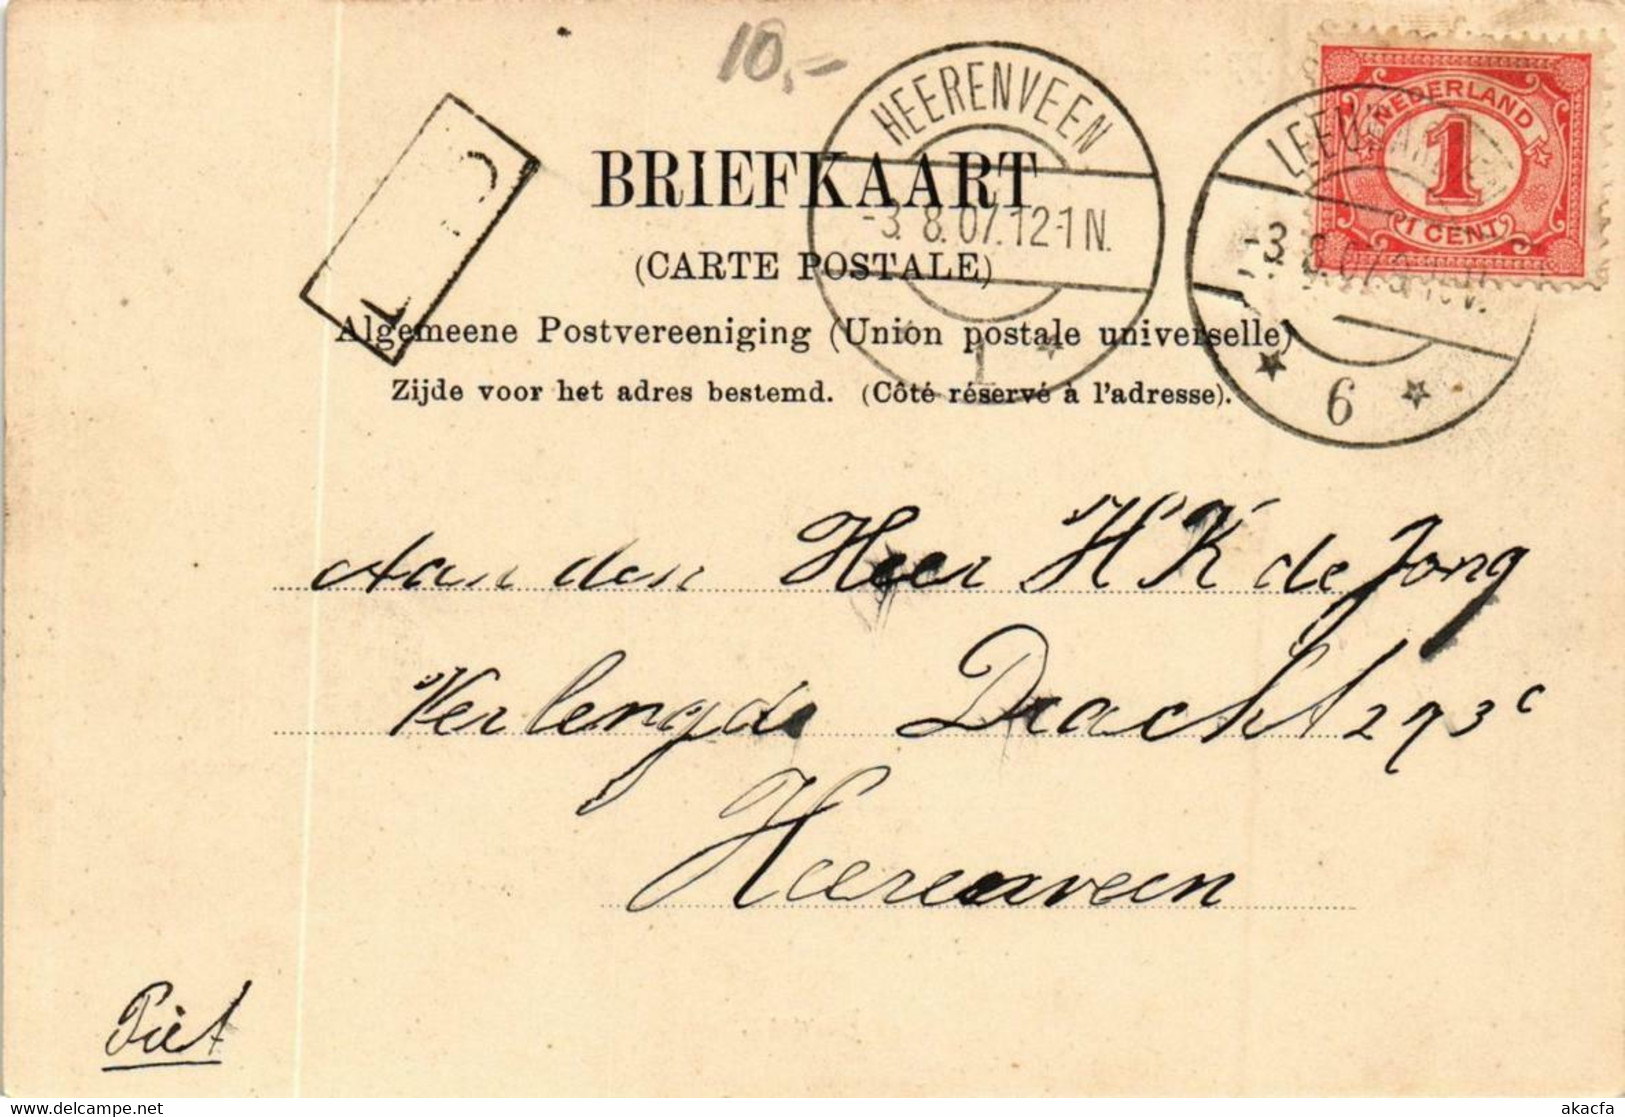 10,-
HEERENVEEN
-3. 8. 07. 12-1 N.
1
NEDERLAND
1
1 CENT
LEEUWARDEN
-3. 8. 07.
6
BRIEFKAART
(CARTE POSTALE)
Algemeene Postvereeniging (Union postale universelle)
Zijde voor het adres bestemd. (Côté réservé à l'adresse).
Aan den Heer H K de Jong
Verlengde Dracht 293 c
Heerenveen
Piet
akacfa